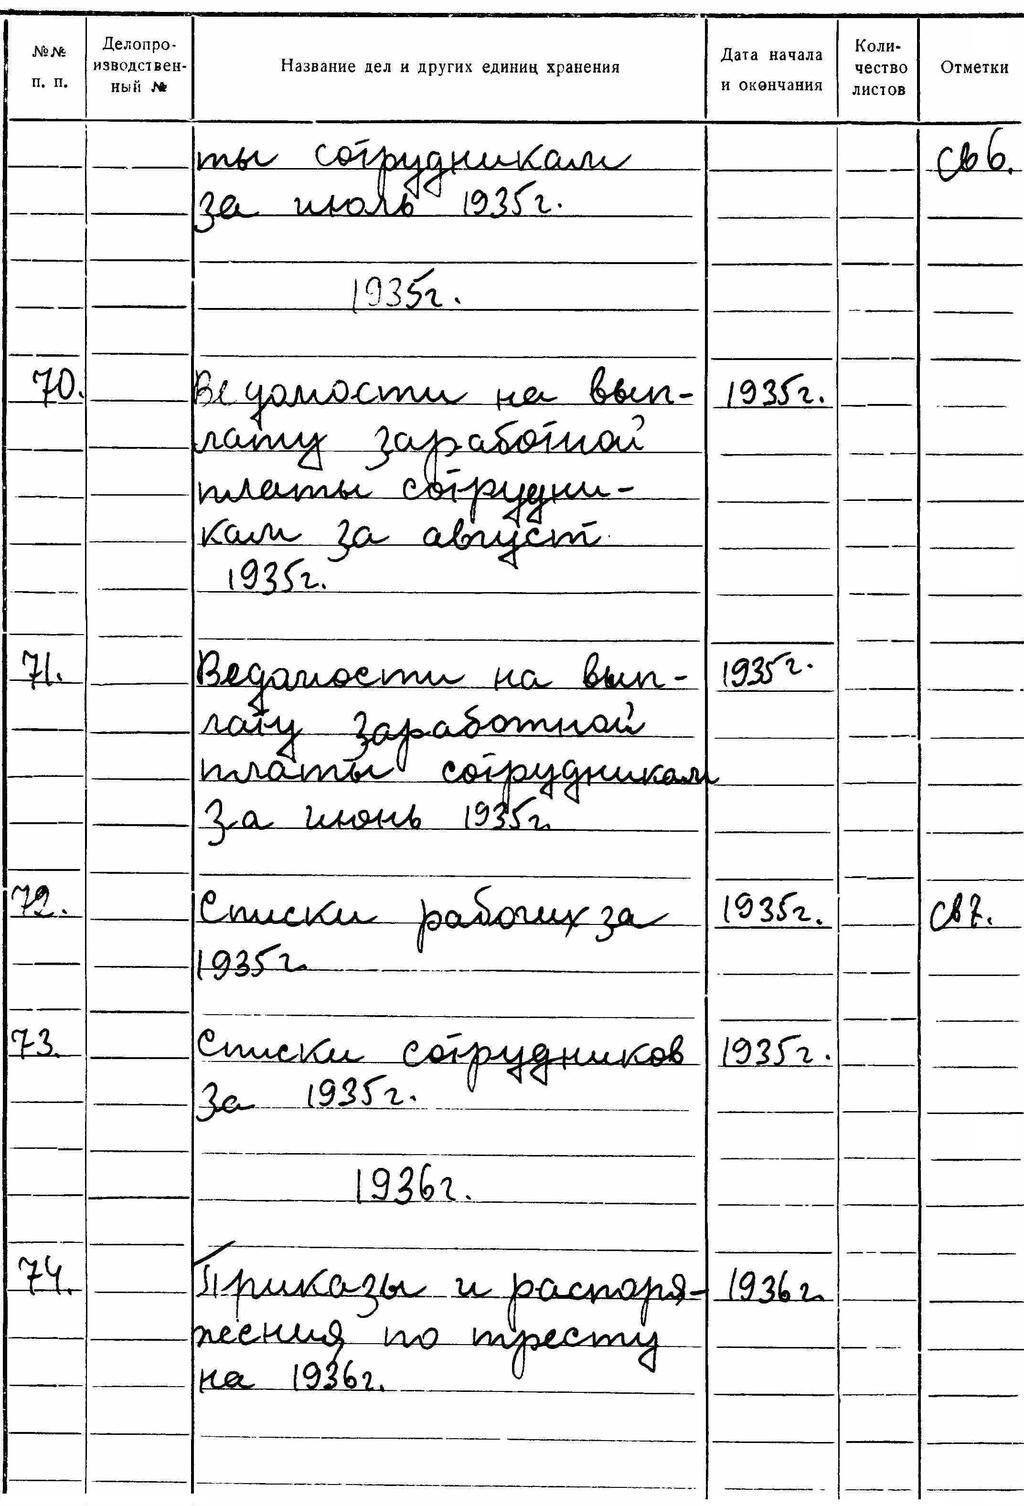 №№ п. п. Делопро-изводствен-ный № Название дел и других единиц хранения Дата начала и окончания Коли-чество листов Отметки
ты сотрудникам св 6.
за июль 1935г.
1935г.
70. Ведомости на вып- 1935г.
лату заработной
платы сотрудни-
кам за август
1935г.
71. Ведомости на вып- 1935г.
лату заработной
платы сотрудникам
за июнь 1935г.
72. Списки рабочих за 1935г. св 7.
1935г.
73. Списки сотрудников 1935г.
за 1935г.
1936г.
74. Приказы и распоря- 1936г.
жения по тресту
на 1936г.